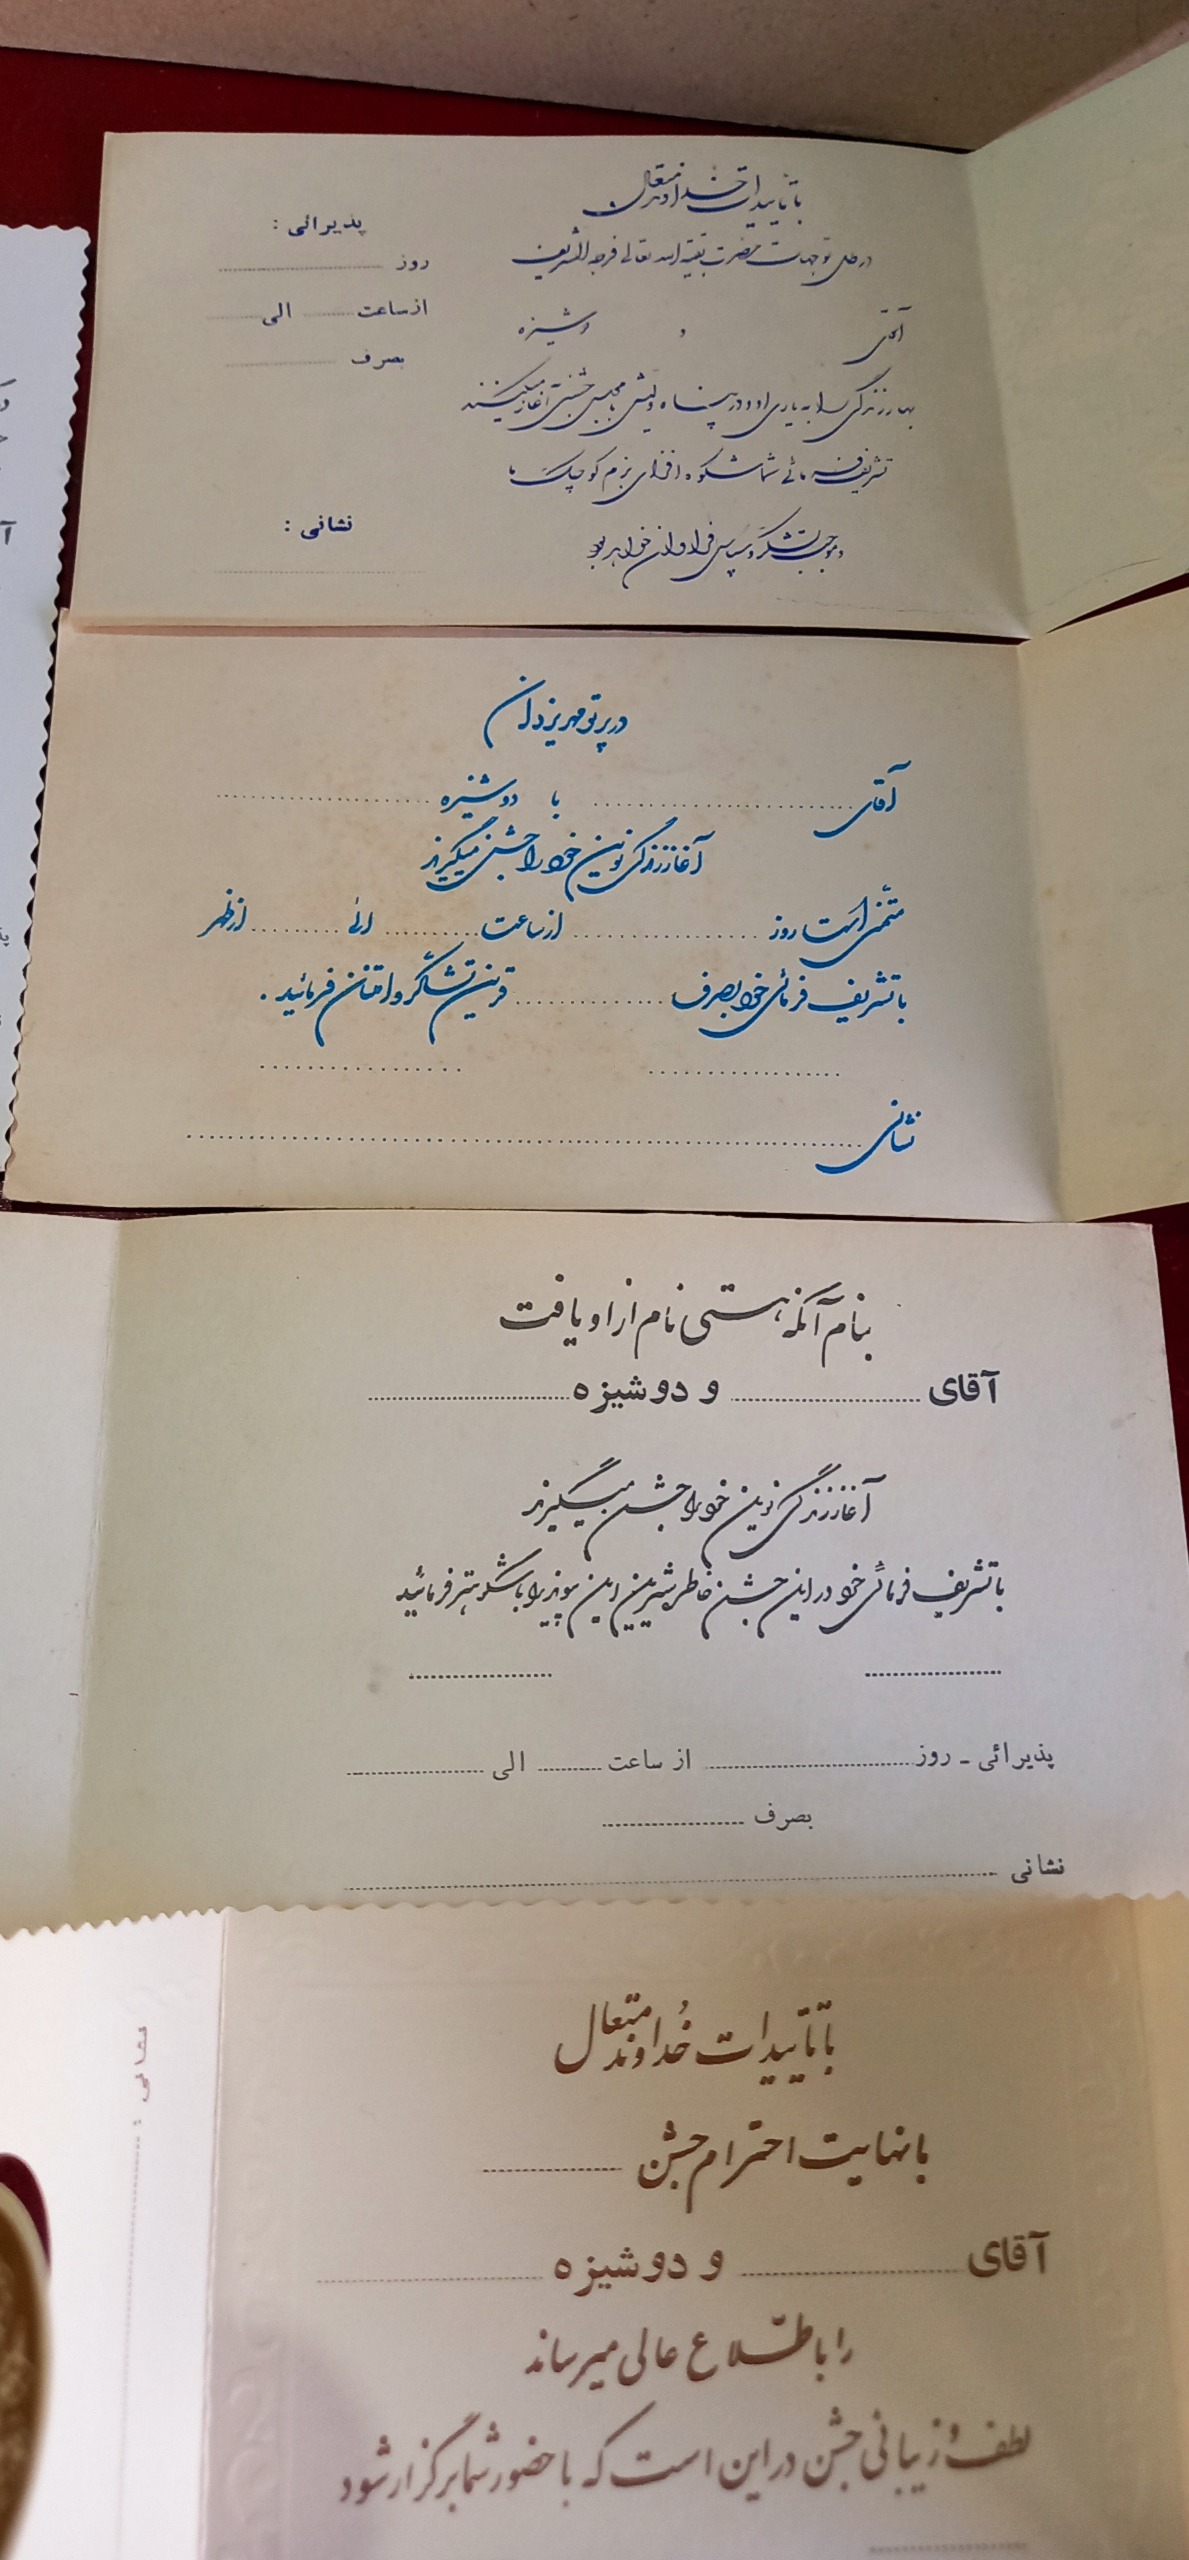 با تأییدات خداوند متعال
در ظل توجهات حضرت بقیة الله تعالی فرجه الشریف
آقای و دوشیزه
بهار زندگی را به یاری او و در پناه با مجلس جشنی آغاز میکنند
تشریف فرمائی شما شکوه افزای بزم کوچک ما
و موجب تشکر و سپاس فراوان خواهد بود
پذیرائی :
روز ....................
از ساعت .......... الی ..........
بصرف ....................
نشانی :
....................
در پرتو مهر یزدان
آقای .................... با دوشیزه ....................
آغاز زندگی نوین خود را جشن میگیرند
متمنی است روز .................... از ساعت .......... الی .......... از ظهر
با تشریف فرمائی خود بصرف ............... قرین تشکر و امتنان فرمائید .
.................... ....................
نشانی ........................................
بنام آنکه هستی نام از او یافت
آقای .................... و دوشیزه ....................
آغاز زندگی نوین خود را جشن میگیرند
با تشریف فرمائی خود در این جشن خاطر شیرین این پیوند را با شکوهتر فرمائید
.................... ....................
پذیرائی - روز .................... از ساعت .......... الی ..........
بصرف ....................
نشانی ........................................
با تأییدات خداوند متعال
با نهایت احترام جشن ....................
آقای .................... و دوشیزه ....................
را باطلاع عالی میرساند
لطف و زیبائی جشن در این است که با حضور شما برگزار شود
نشانی : ....................